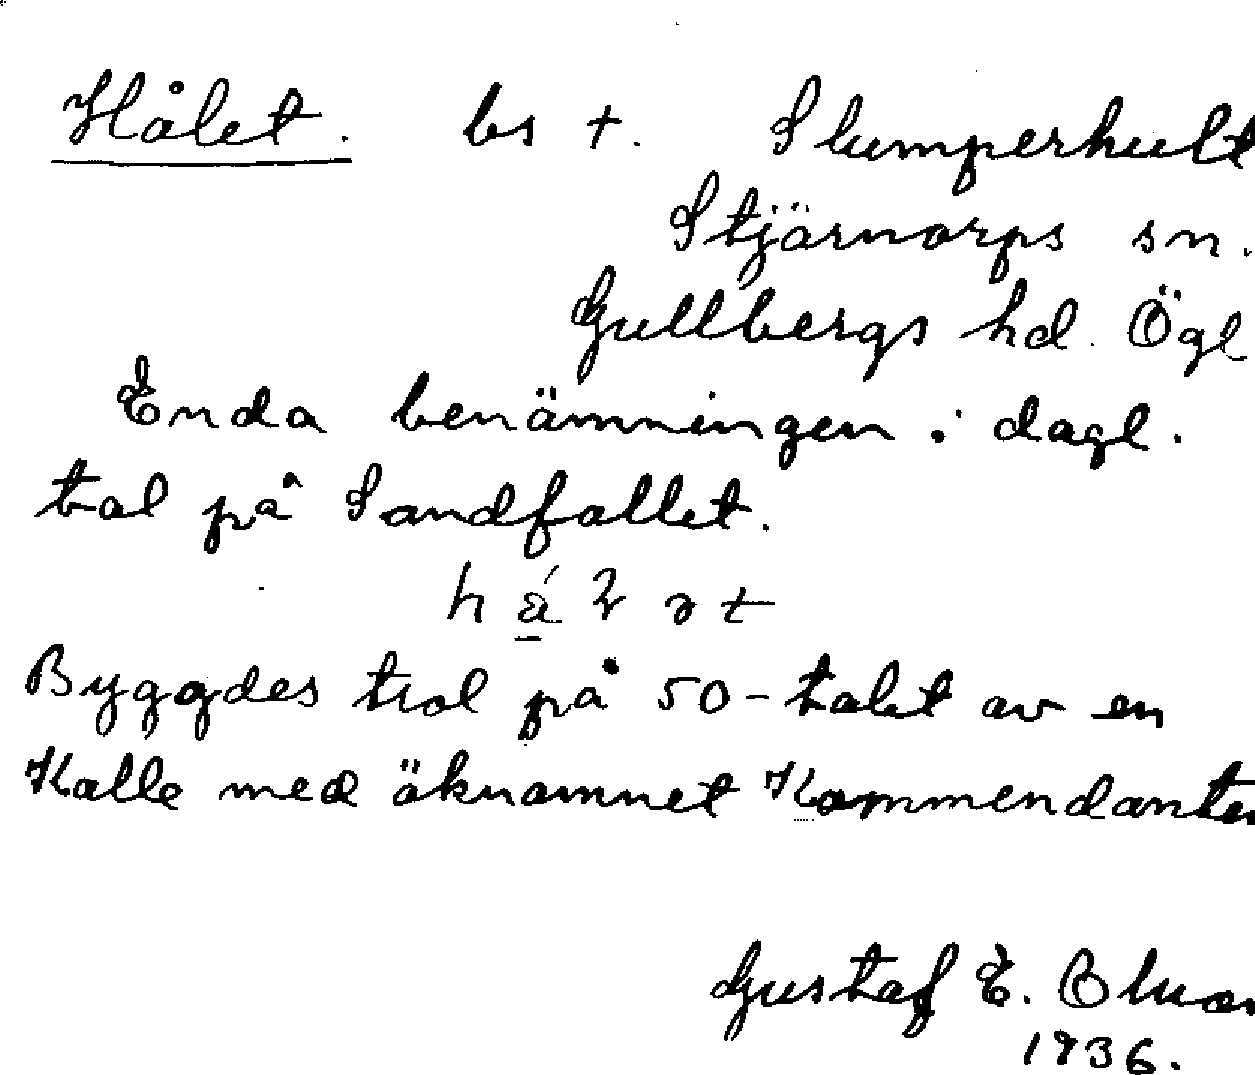 Hålet. bs +. Slumperhult
Stjärnorps sn.
Gullbergs hd. Ögl
Enda benämningen i dagl.
tal på Sandfallet.
Byggdes trol på 50-talet av en
Kalle med öknamnet Kommendanten
Gustaf E.
1936.